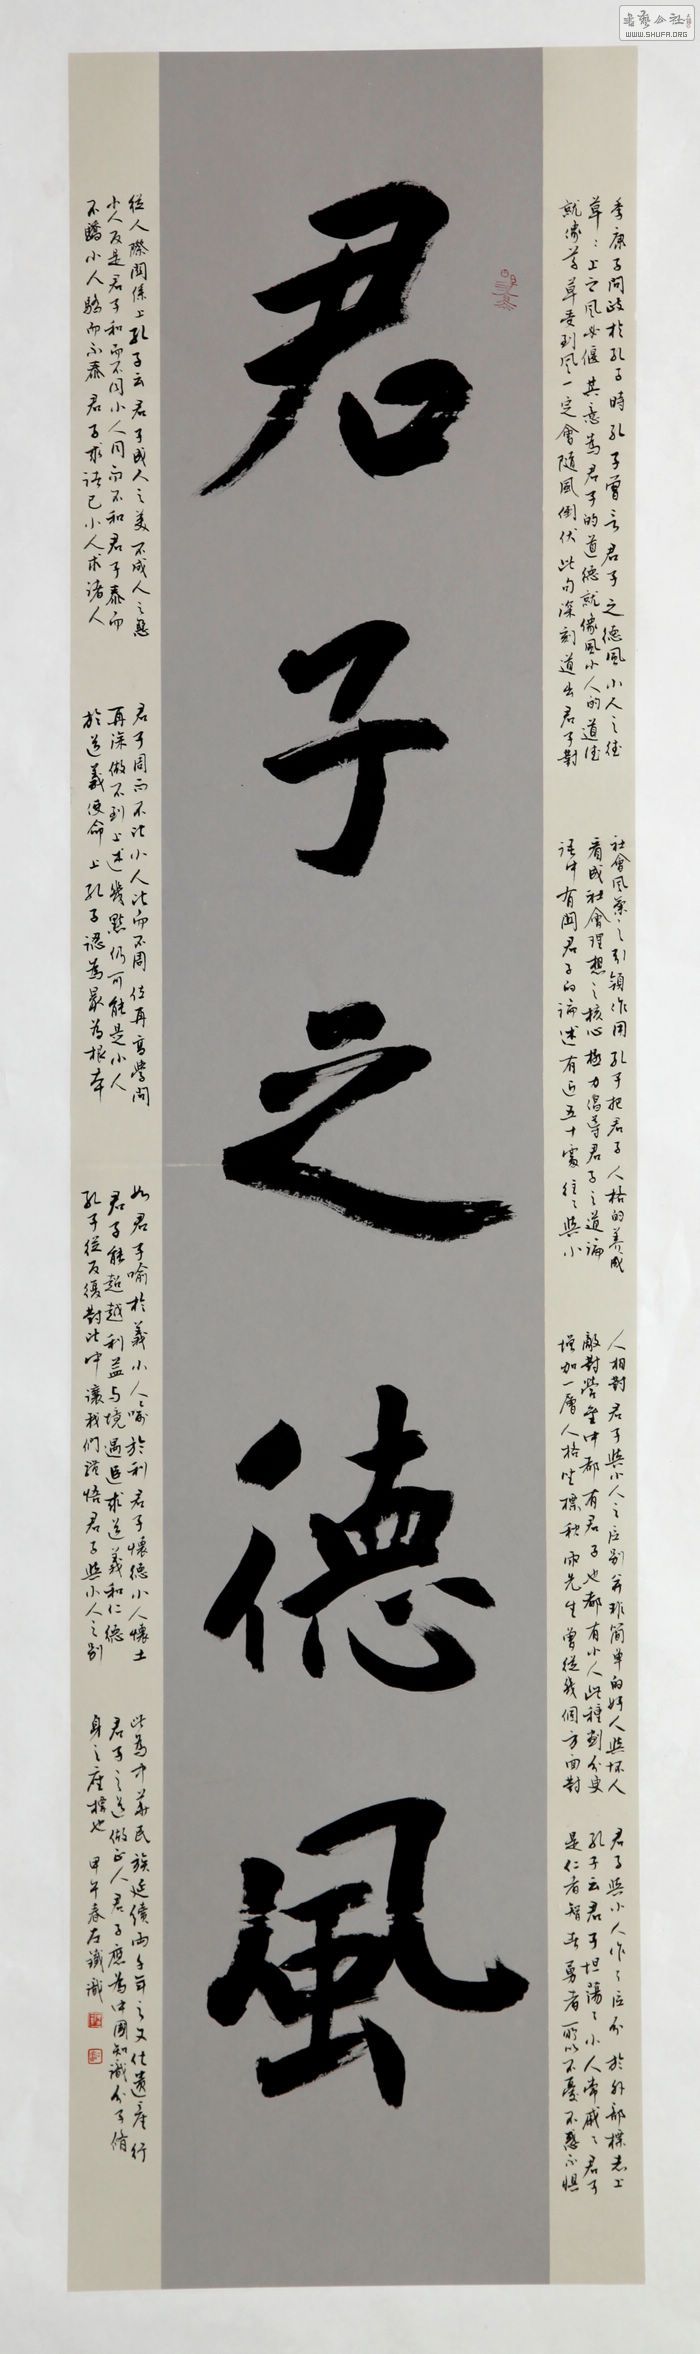 書藝公社
WWW.SHUFA.ORG
君子之德風
季康子問政於孔子時孔子曾言君子之德風小人之德
草草上之風必偃其意為君子的道德就像風小人的道德
就像草草受到風一定會隨風倒伏此句深刻道出君子對
社會風氣之引領作用孔子把君子人格的養成
看成社會理想之核心極力倡導君子之道論
語中有關君子的論述有近五十處往往與小
人相對君子與小人之區別並非簡單的好人與壞人
敵對營壘中都有君子也都有小人此種劃分更
增加一層人格坐標秋雨先生曾從幾個方面對
君子與小人作了區分於外部標志上
孔子云君子坦蕩蕩小人常戚戚君子
是仁者智者勇者所以不憂不惑不懼
從人際關係上孔子云君子成人之美不成人之惡
小人反是君子和而不同小人同而不和君子泰而
不驕小人驕而不泰君子求諸己小人求諸人
君子周而不比小人比而不周位再高學問
再深做不到上述幾點仍可能是小人
於道義使命上孔子認為最為根本
如君子喻於義小人喻於利君子懷德小人懷土
君子能超越利益与境遇追求道義和仁德
孔子從反復對比中讓我們證悟君子與小人之別
此為中華民族延續兩千年之文化遺產行
君子之道做正人君子應為中國知識分子脩
身之座標也 甲午春左鐵識